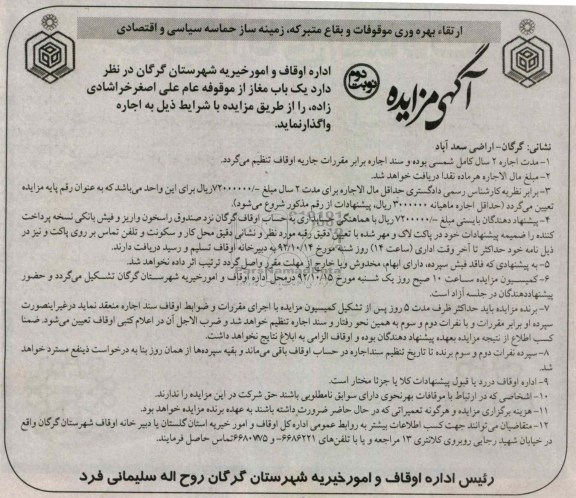 ارتقاء بهره وری موقوفات و بقاع متبرکه، زمینه ساز حماسه سیاسی و اقتصادی
آگهی مزایده
نوبت دوم
اداره اوقاف و امورخیریه شهرستان گرگان در نظر
دارد یک باب مغاز از موقوفه عام علی اصغرخراشادی
زاده، را از طریق مزایده با شرایط ذیل به اجاره
واگذارنماید.
نشانی: گرگان- اراضی سعد آباد
۱- مدت اجاره ۲ سال کامل شمسی بوده و سند اجاره برابر مقررات جاریه اوقاف تنظیم می‌گردد.
۲- مبلغ مال الاجاره هرماده نقدا دریافت خواهد شد.
۳- برابر نظریه کارشناس رسمی دادگستری حداقل مال الاجاره برای مدت ۲ سال مبلغ /-۷۲۰۰۰۰۰۰ریال برای این واحد می‌باشدکه به عنوان رقم پایه مزایده
تعیین می‌گردد (حداقل اجاره ماهیانه ۳۰۰۰۰۰۰ ریال، پیشنهادات از رقم مذکور شروع می‌شود).
۴- پیشنهاد دهندگان بایستی مبلغ /-۷۲۰۰۰۰۰ ریال با هماهنگی حسابداری به حساب اوقاف گرگان نزد صندوق راسخون واریز و فیش بانکی نسخه پرداخت
کننده را ضمیمه پیشنهادات خود در پاکت لاک و مهر شده با تعیین دقیق رقبه مورد نظر و نشانی دقیق محل کار و سکونت و تلفن تماس بر روی پاکت و نیز در
ذیل نامه خود حداکثر تا آخر وقت اداری (ساعت ۱۴) روز شنبه مورخ ۹۲/۱۰/۱۴ به دبیرخانه اوقاف تسلیم و رسید دریافت دارند.
۵- به پیشنهادی که فاقد فیش سپرده، دارای ابهام، مخدوش ویا خارج از مهلت مقرر واصل گردد ترتیب اثر داده نخواهد شد.
۶- کمیسیون مزایده ساعت ۱۰ صبح روز یک شنبه مورخ ۹۲/۱۰/۱۵ درمحل اداره اوقاف و امورخیریه شهرستان گرگان تشکیل می‌گردد و حضور
پیشنهاددهندگان در جلسه آزاد است.
۷- برنده مزایده باید حداکثر ظرف مدت ۵ روز پس از تشکیل کمیسیون مزایده با اجرای مقررات و ضوابط اوقاف سند اجاره منعقد نماید درغیراینصورت
سپرده او برابر مقررات و با نفرات دوم و سوم به همین نحو رفتار و سند اجاره تنظیم خواهد شد و ضرب الاجل آن در اعلام کتبی اوقاف تعیین می‌شود. ضمنا
کسب اطلاع از نتیجه مزایده بعهده پیشنهاد دهندگان بوده و اوقاف الزامی به ابلاغ نتایج نخواهد داشت.
۸- سپرده نفرات دوم و سوم برنده تا تاریخ تنظیم سنداجاره در حساب اوقاف باقی می‌ماند و بقیه سپرده‌ها از همان روز بنا به درخواست ذینفع مسترد خواهد
شد.
۹- اداره اوقاف در رد یا قبول پیشنهادات کلا یا جزئا مختار است.
۱۰- اشخاصی که در ارتباط با موقوفات بهرنحوی دارای سوابق نامطلوبی باشند حق شرکت در این مزایده را ندارند.
۱۱- هزینه برگزاری مزایده و هرگونه تعمیراتی که در حال حاضر ضرورت داشته باشند به عهده برنده مزایده خواهد بود.
۱۲- متقاضیان می‌توانند جهت کسب اطلاعات بیشتر به روابط عمومی اداره کل اوقاف و امور خیریه استان گلستان یا دبیر خانه اوقاف شهرستان گرگان واقع
در خیابان شهید رجایی روبروی کلانتری ۱۳ مراجعه و یا با تلفن‌های ۶۶۸۶۲۲۱- و ۶۶۸۰۷۷۵تماس حاصل فرمایند.
رئیس اداره اوقاف و امورخیریه شهرستان گرگان روح اله سلیمانی فرد